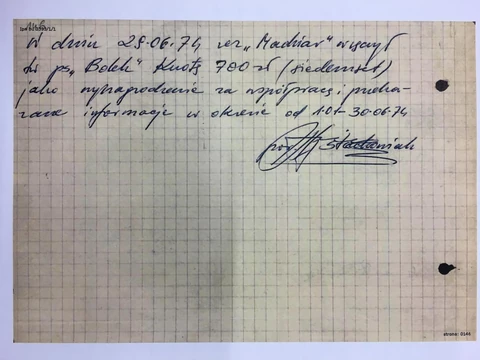 W dniu 29.06.74 rez „Madziar" wręczył
tw ps „Bolek" kwotę 700 zł (siedemset)
jako wynagrodzenie za współpracę i przeka-
zane informacje w okresie od 1.01-30.06.74
strona: 0146